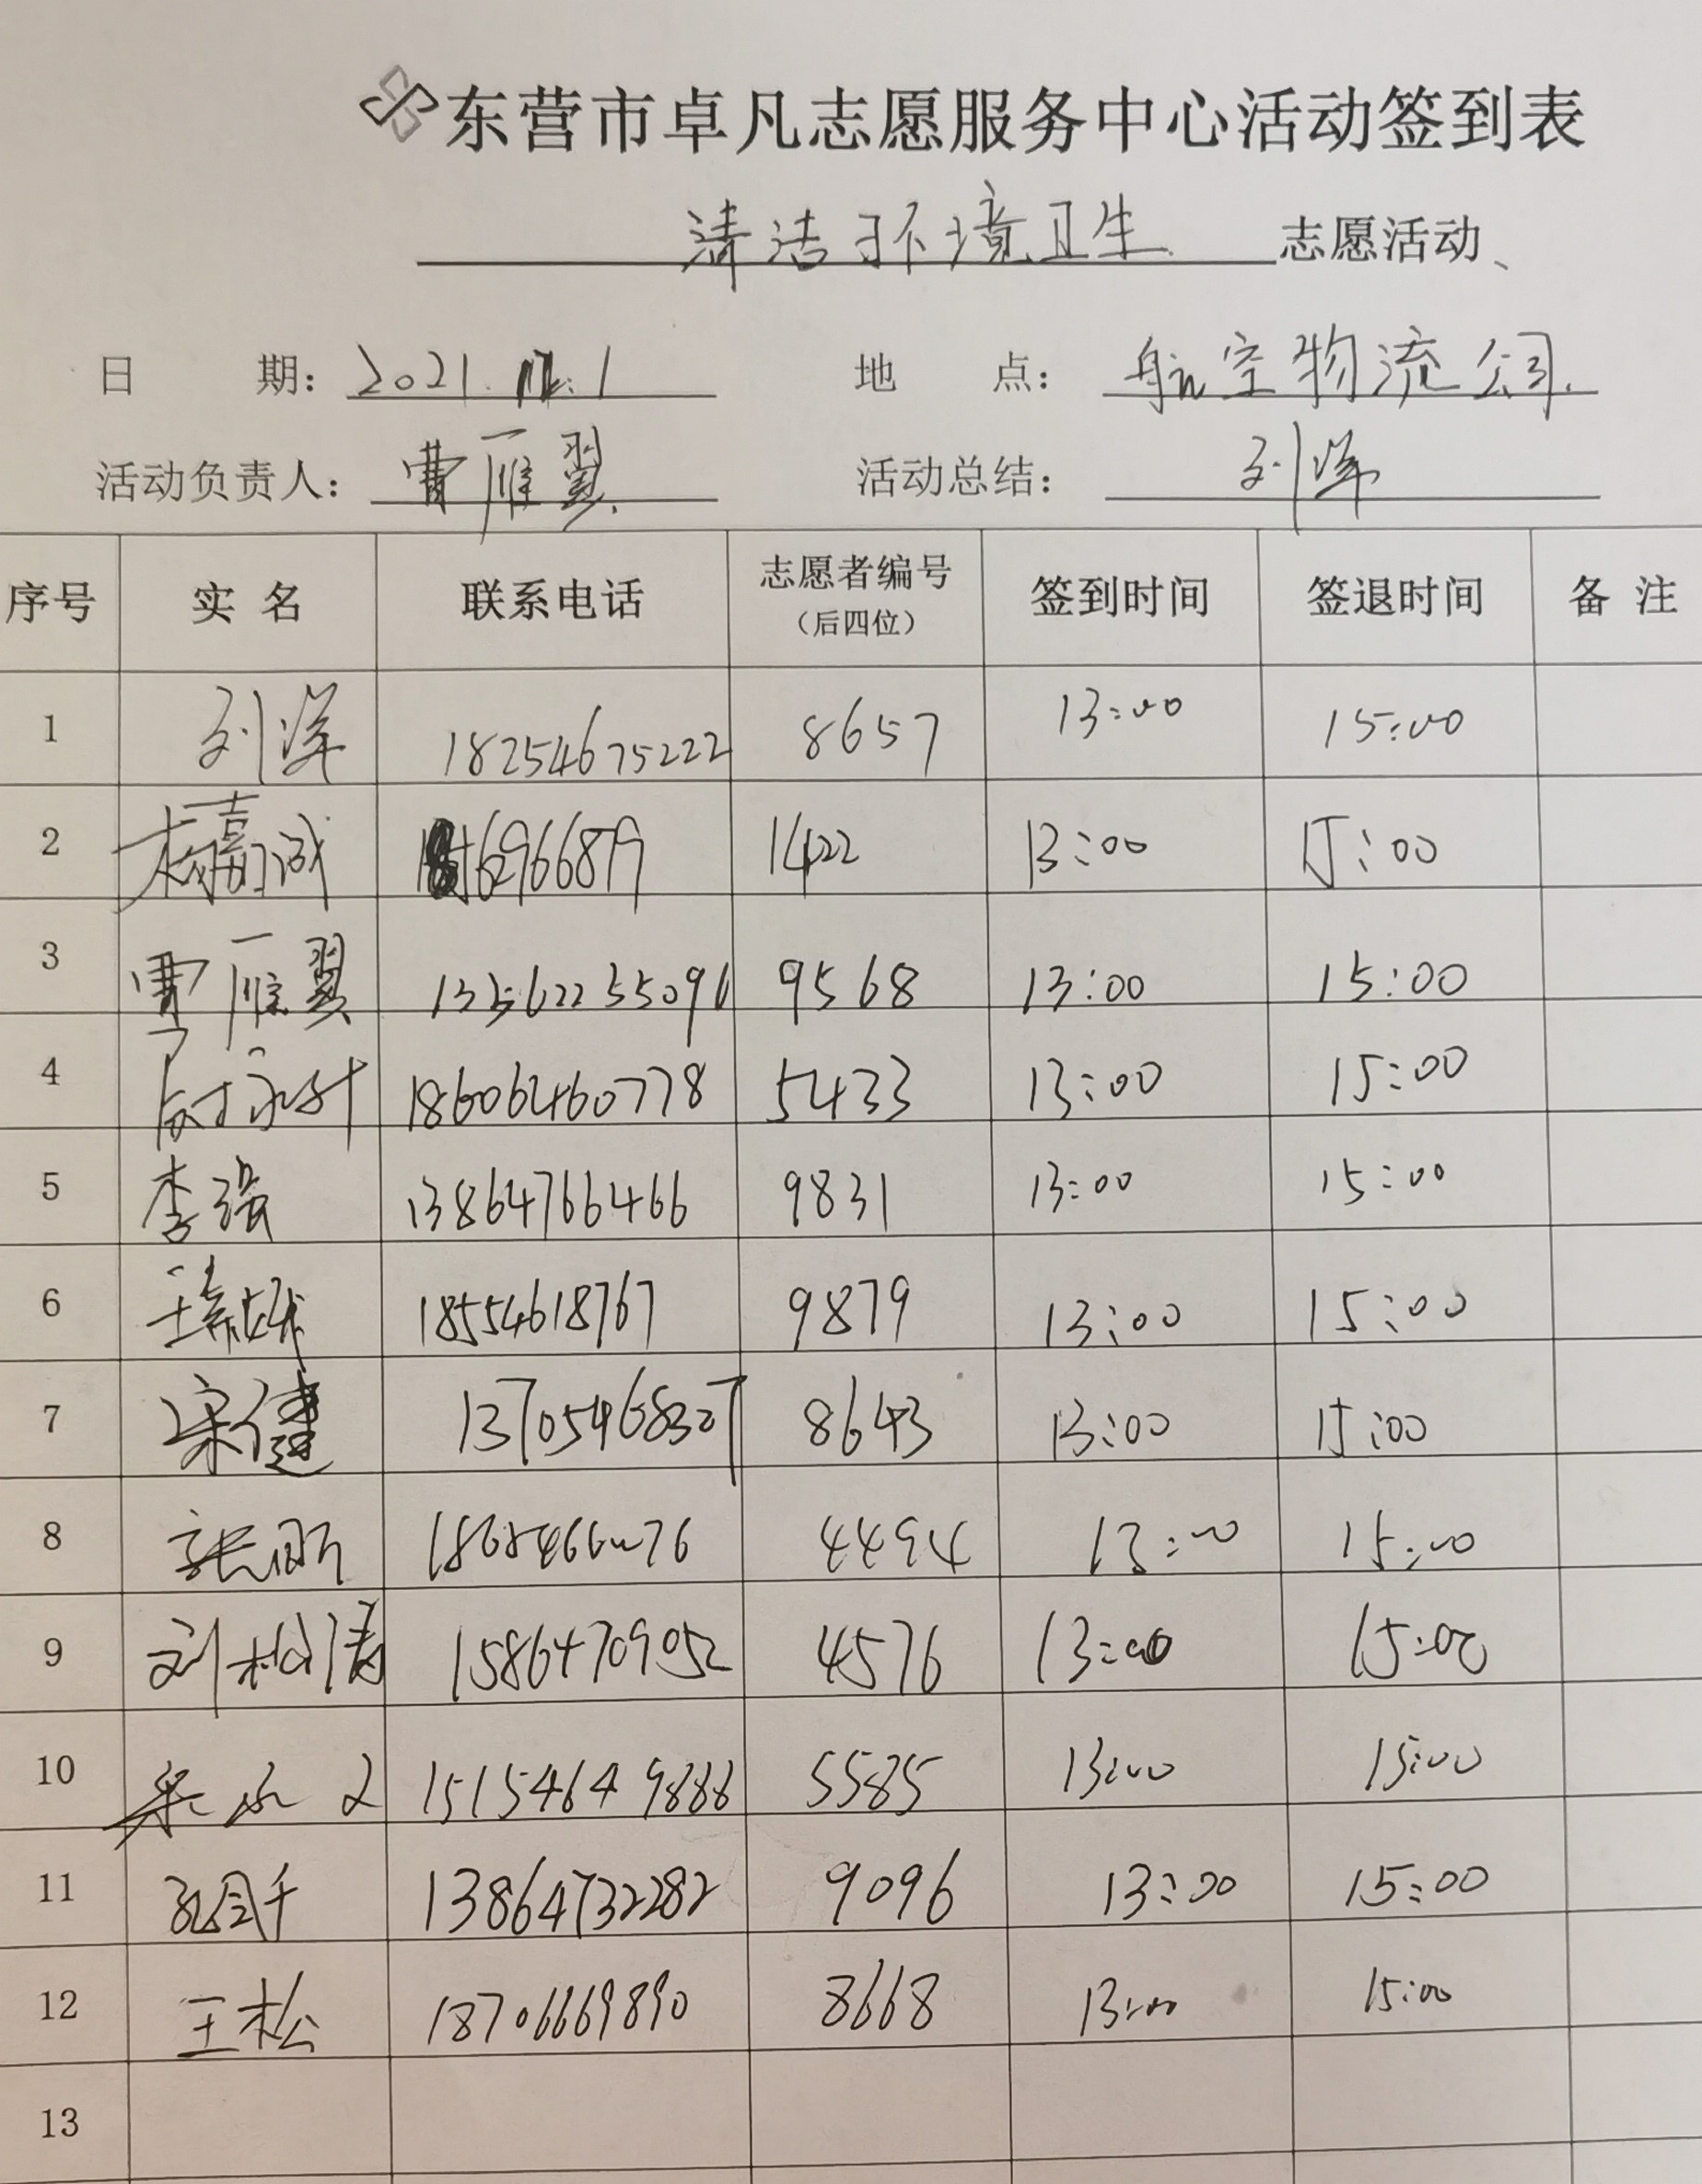 东营市卓凡志愿服务中心活动签到表
清洁环境卫生 志愿活动
日 期: 2021. 12. 1 地 点: 航空物流公司
活动负责人: 曹雁翼 活动总结: 刘洋
序号 实名 联系电话 志愿者编号(后四位) 签到时间 签退时间 备注
1 刘洋 18254675222 8657 13:00 15:00
2 杨嘉诚 1422 13:00 15:00
3 曹雁翼 9568 13:00 15:00
4 18606460778 5433 13:00 15:00
5 李强 13864766466 9831 13:00 15:00
6 18554618767 9879 13:00 15:00
7 宋健 13705468307 8643 13:00 15:00
8 4494 13:00 15:00
9 刘松涛 15864709052 4576 13:00 15:00
10 15154649888 5585 13:00 15:00
11 13864732282 9096 13:00 15:00
12 王松 18706669890 8668 13:00 15:00
13